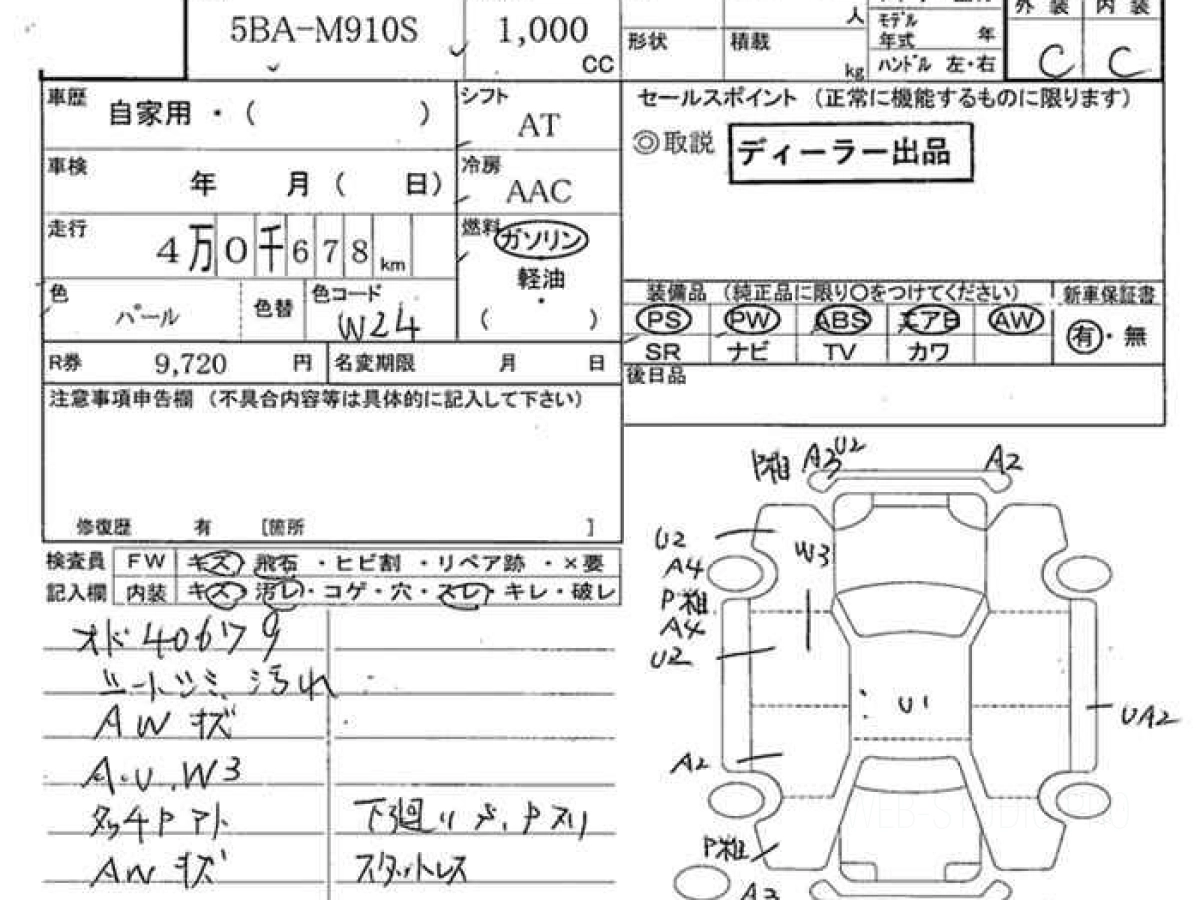 5BA-M910S
1,000
CC
形状
積載
人
kg
モデル
年式
年
ハンドル 左・右
外装 内装
C C
車歴
自家用・( )
シフト
AT
車検
年 月( 日)
冷房
AAC
走行
4万0千678km
燃料
ガソリン
軽油
・
( )
色
パール
色替
色コード
W24
R券 9,720 円
名変期限 月 日
セールスポイント (正常に機能するものに限ります)
◎取説
ディーラー出品
装備品 (純正品に限り○をつけてください)
新車保証書
PS PW ABS エアB AW
有・無
SR ナビ TV カワ
後日品
注意事項申告欄 (不具合内容等は具体的に記入して下さい)
修復歴 有 [箇所 ]
検査員
記入欄
FW キズ 飛石・ヒビ割・リペア跡・×要
内装 キズ・汚レ・コゲ・穴・スレ・キレ・破レ
オド40679
シートシミ、汚れ
AWキズ
A・U、W3
タッチPアト
AWキズ
下廻りサビ、Pヌリ
スタットレス
P粗 A3 U2
A2
U2
A4
P粗
A4
U2
W3
U1
UA2
A2
P粗
A3
WEB-STUDIO.PRO